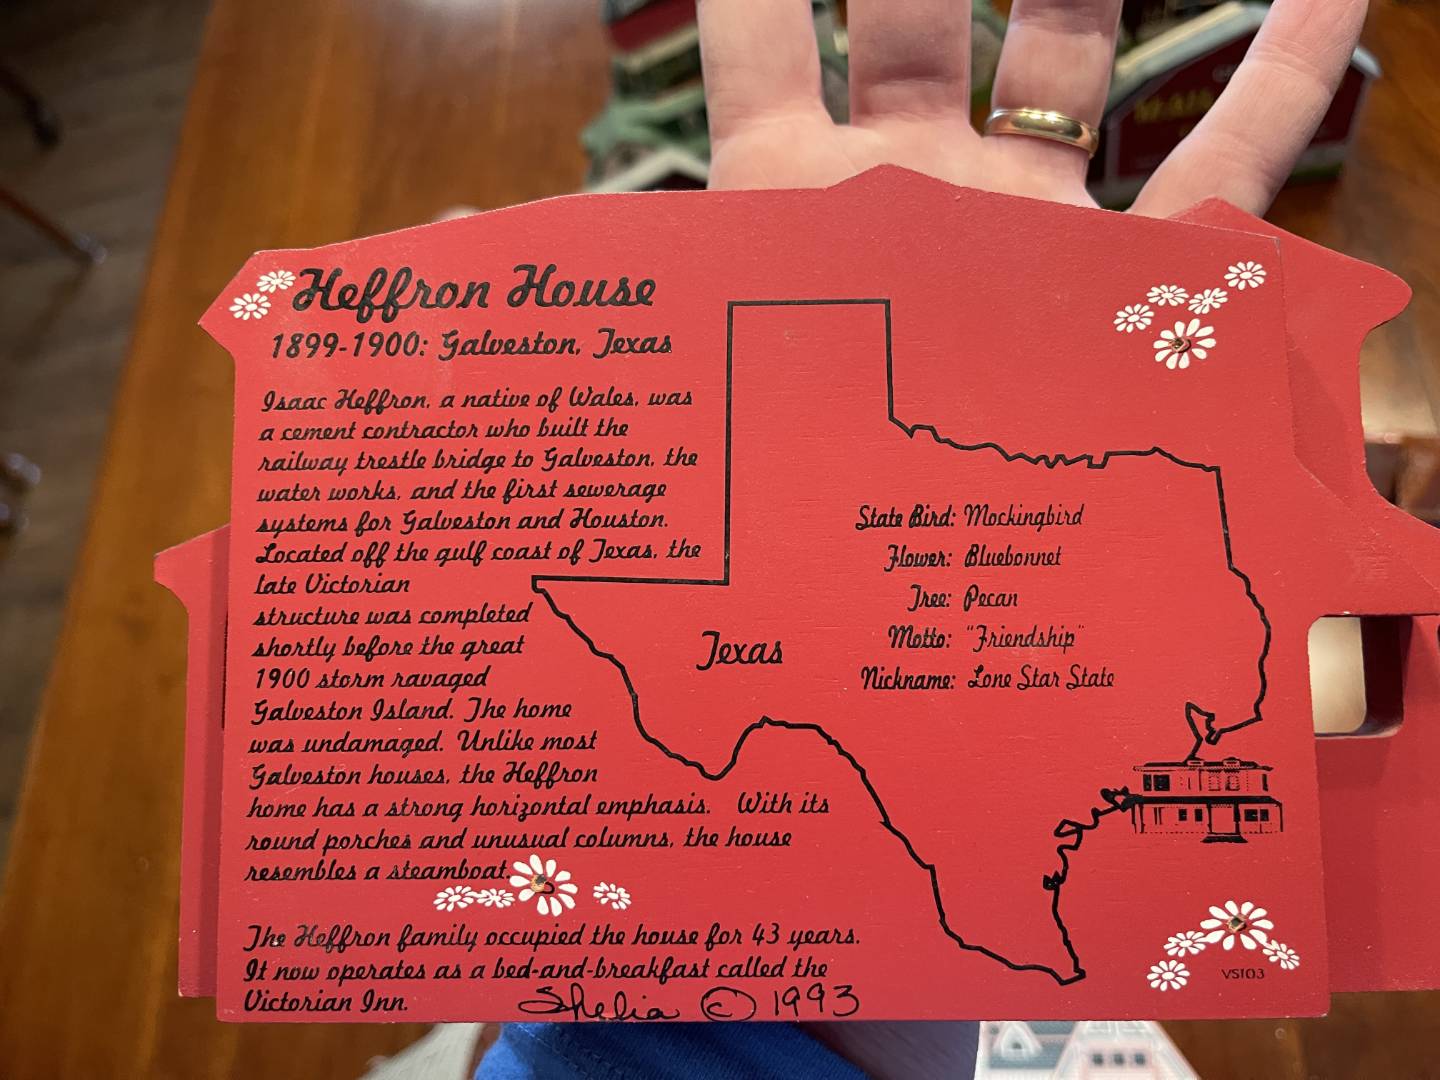 Heffron House
1899-1900: Galveston, Texas
Isaac Heffron, a native of Wales, was
a cement contractor who built the
railway trestle bridge to Galveston, the
water works, and the first sewerage
systems for Galveston and Houston.
Located off the gulf coast of Texas, the
late Victorian
structure was completed
shortly before the great
1900 storm ravaged
Galveston Island. The home
was undamaged. Unlike most
Galveston houses, the Heffron
home has a strong horizontal emphasis. With its
round porches and unusual columns, the house
resembles a steamboat.
The Heffron family occupied the house for 43 years.
It now operates as a bed-and-breakfast called the
Victorian Inn.
Shelia © 1993
Texas
State Bird: Mockingbird
Flower: Bluebonnet
Tree: Pecan
Motto: "Friendship"
Nickname: Lone Star State
VST03